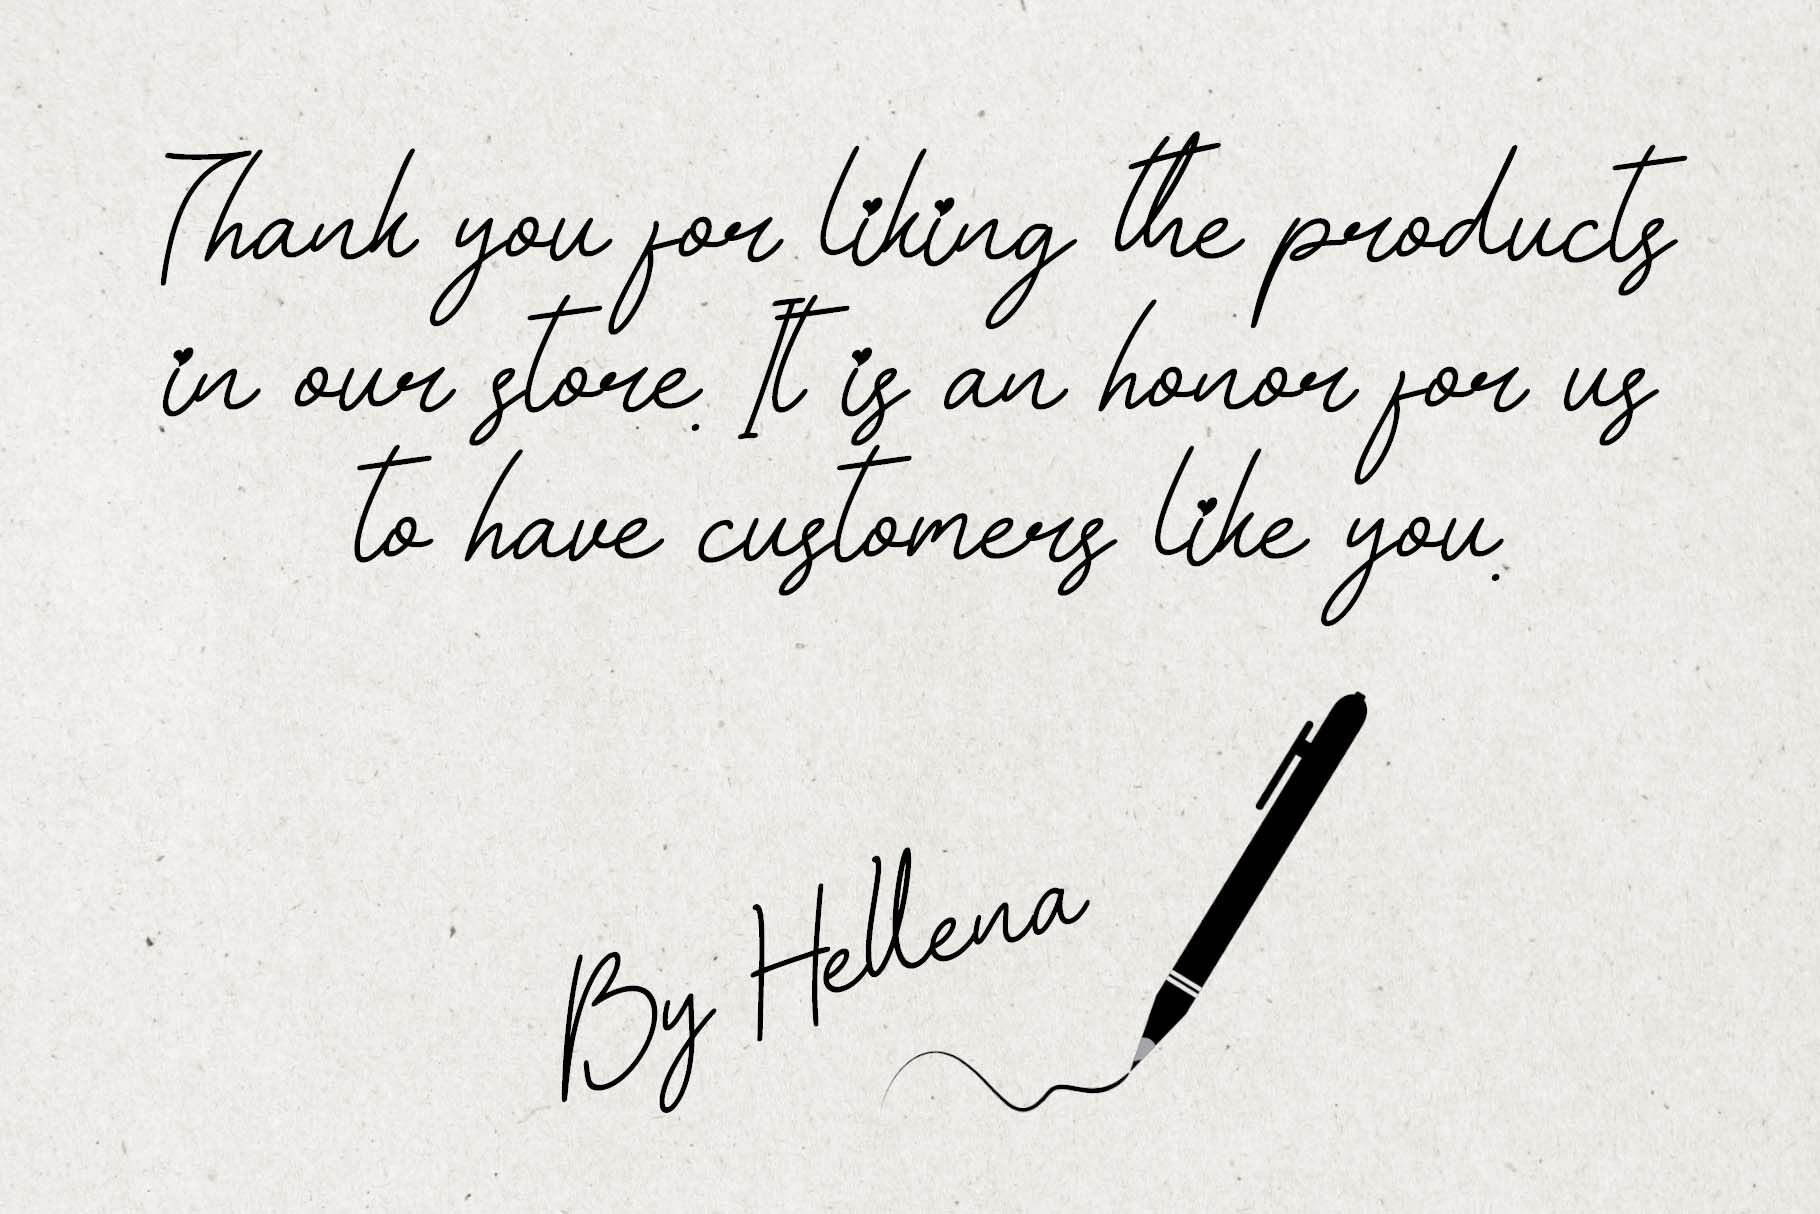 Thank you for liking the products
in our store. It is an honor for us
to have customers like you.
By Hellena